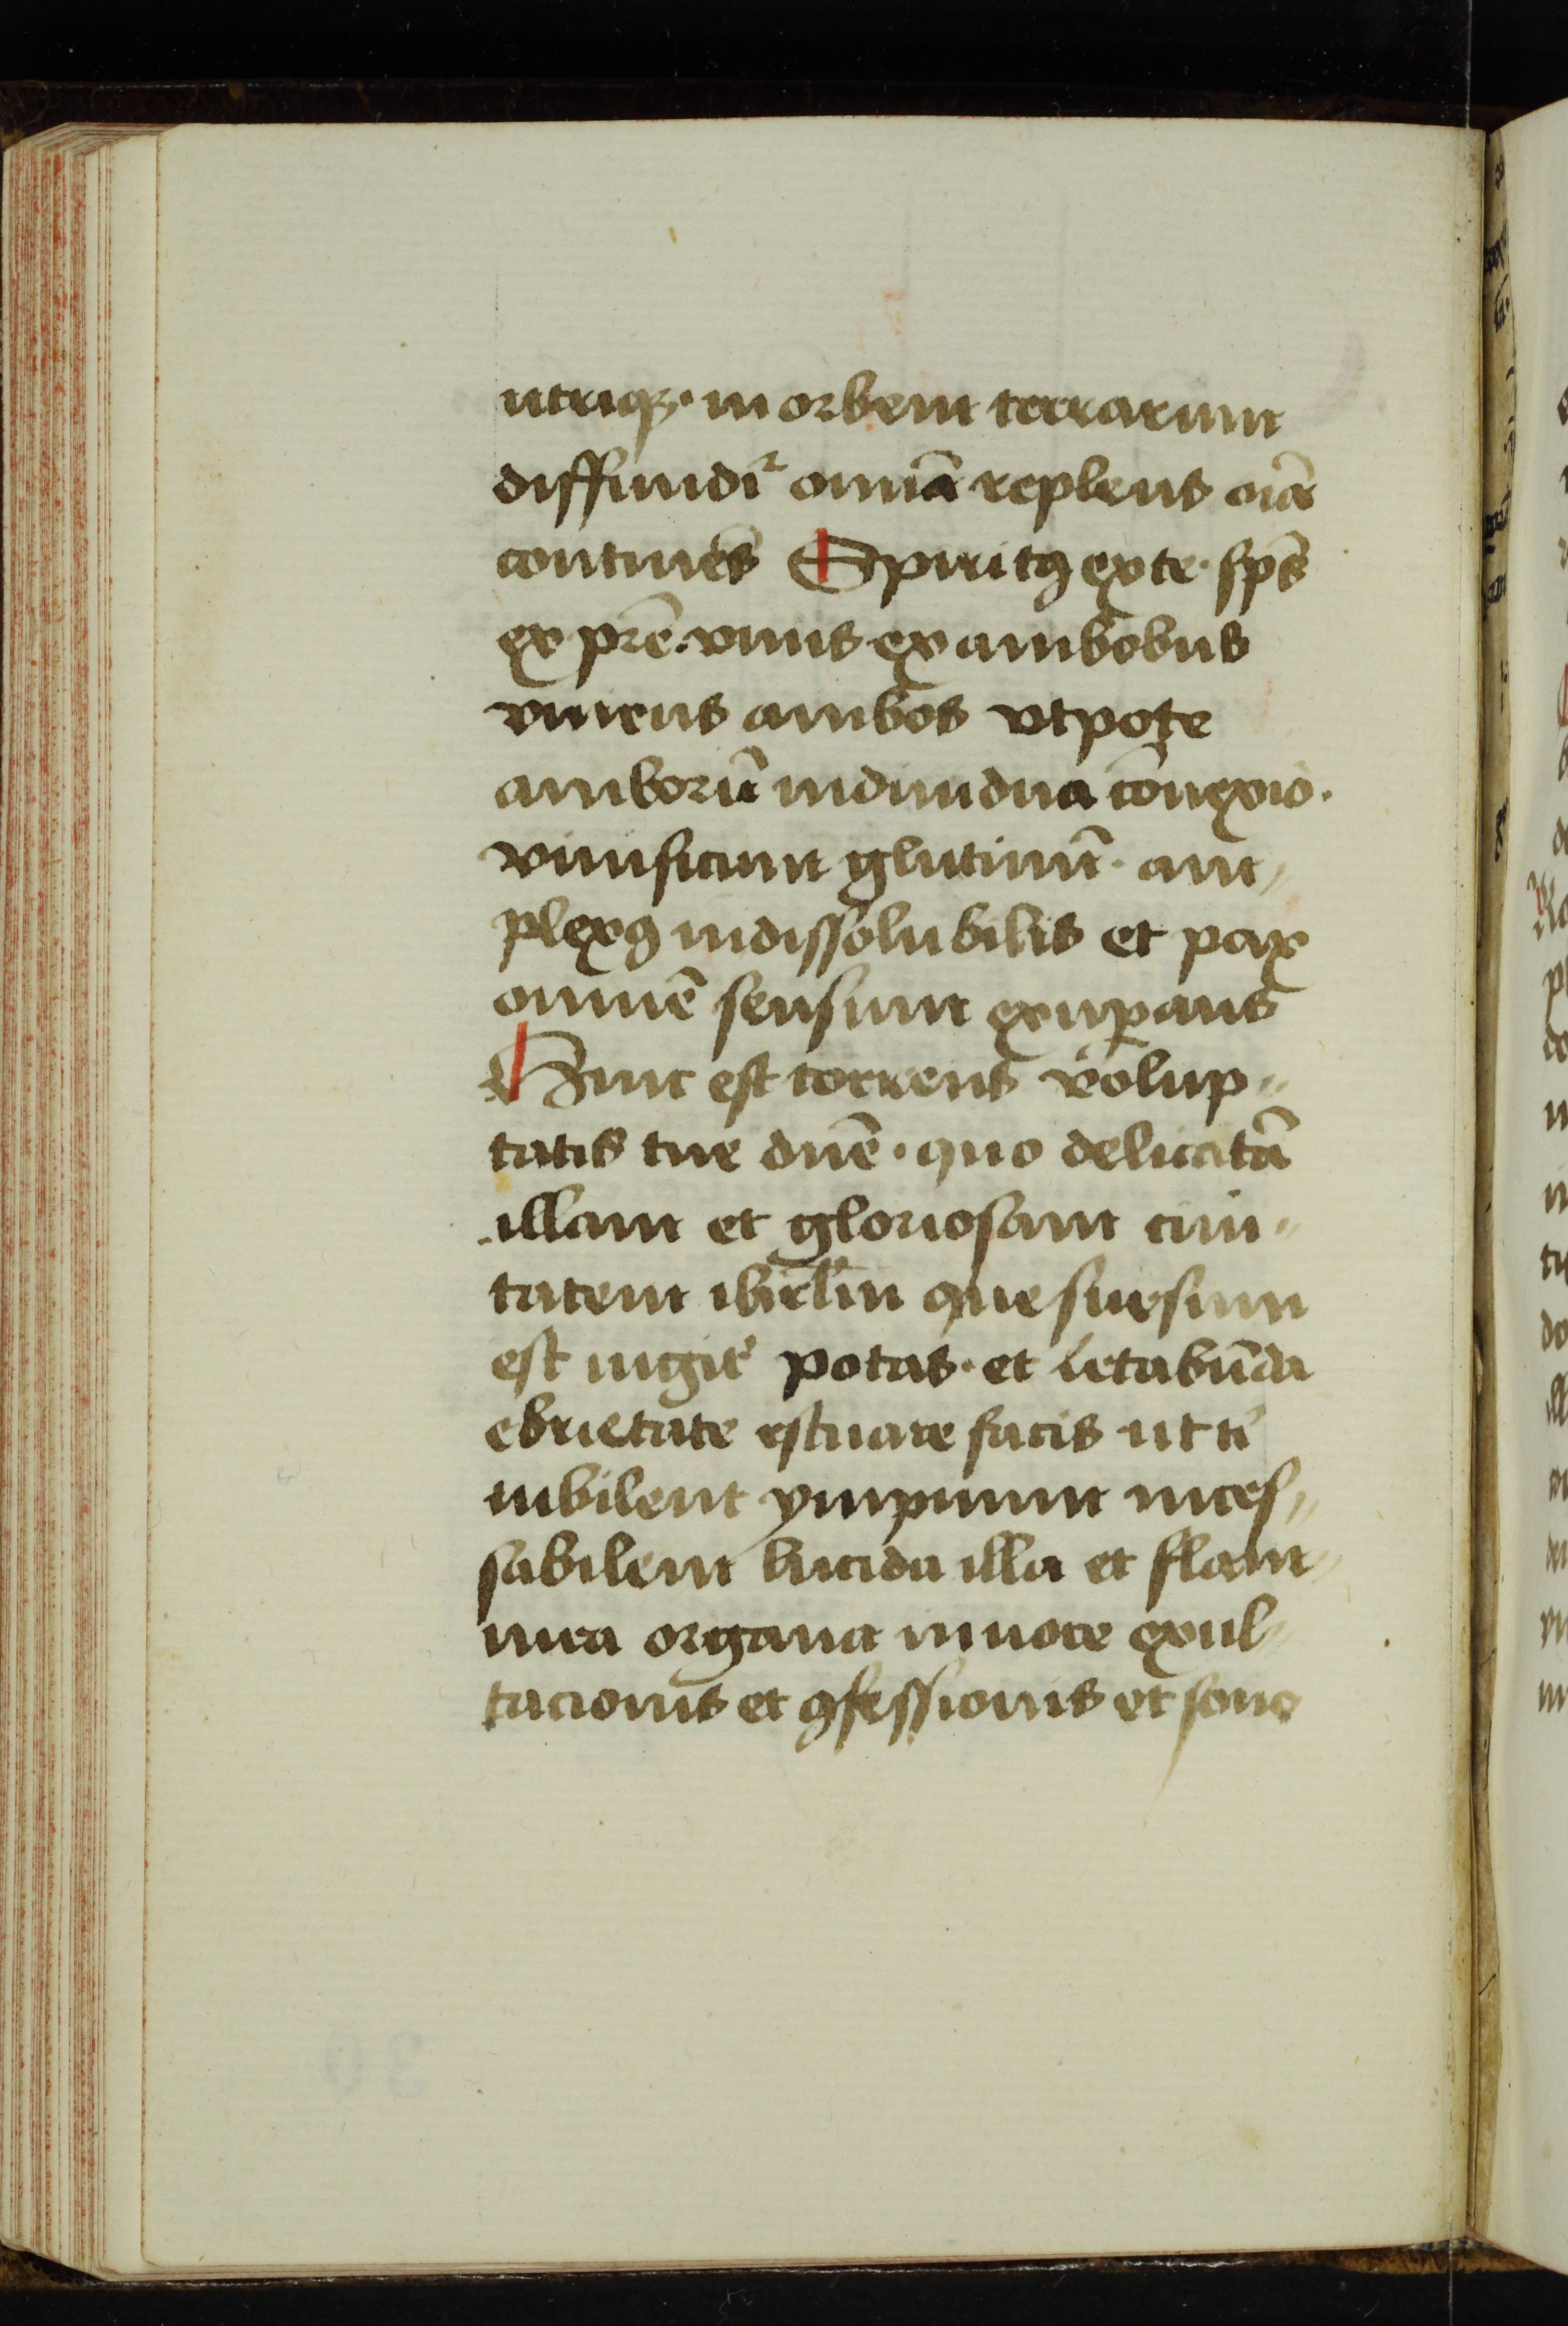 utriqꝫ· in orbem terrarum
diffundit᷑ omnia replens oīa
continēs Spiritꝯ ex te· sp̄s
ex pr̄e· vnus ex ambobus
vniens ambos vtpote
amborū indiuidua cōnexio·
viuificum glutinū· am,,
plexꝯ indissolubilis et pax
omnē sensum exuꝑans
Hinc est torrens volup,,
tatis tue dn̄e· quo delicatā
illam et gloriosam ciui,,
tatem ihrl̄m que sursum
est iugit᷑ potas· et letabūda
ebrietate estuare facis ut t'
iubilent ympnum inces,,
sabilem lucida illa et flam,,
mea organa in uoce exul,,
tacionis et ꝯfessionis et sono